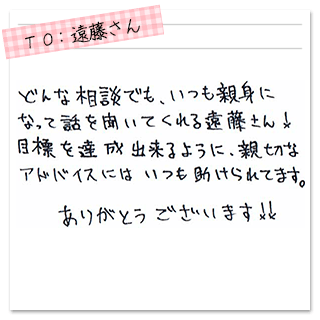 TO:遠藤さん
どんな相談でも、いつも親身に
なって話を聞いてくれる遠藤さん!
目標を達成出来るように、親切な
アドバイスには いつも助けられてます。
ありがとうございます!!